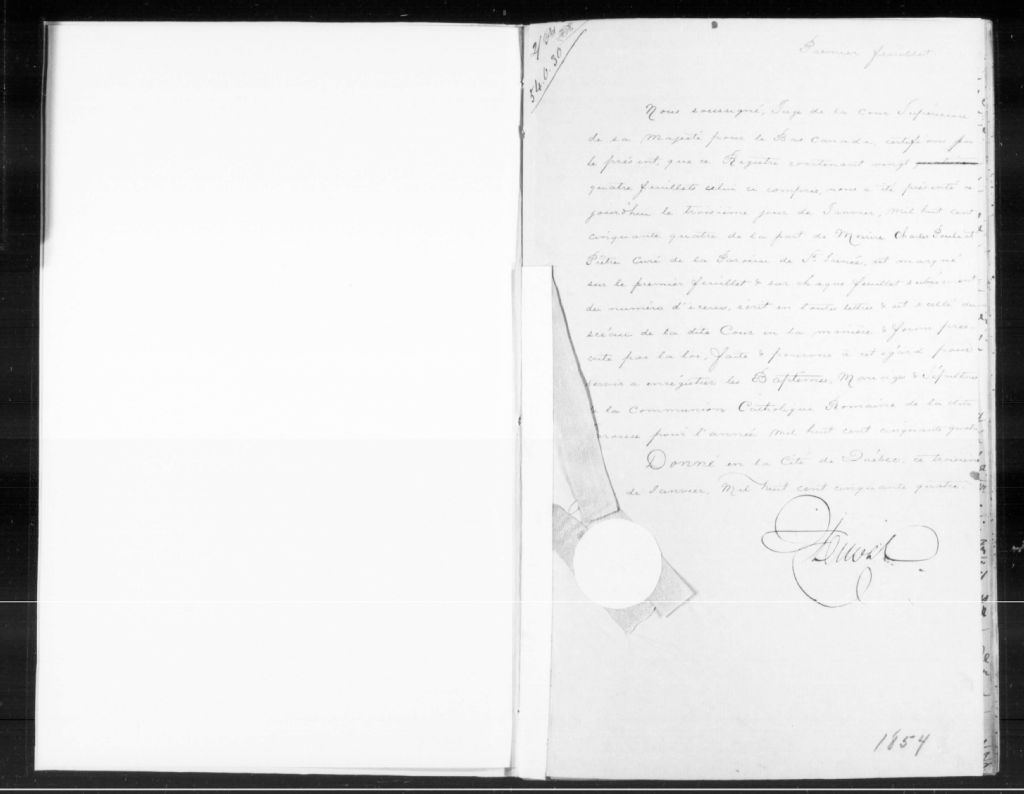 54.0.30
Premier feuillet
Nous soussigné, Juge de la Cour Supérieure
de sa Majesté pour le Bas Canada, certifions par
le présent, que ce Régistre contenant vingt
quatre feuillets celui ci compris, nous a été présenté ce
jourd'hui le troisième jour de Janvier, mil huit cent
cinquante quatre de la part de Messire Charles
Prêtre Curé de la Paroisse de St. Irenée, est marqué
sur le premier feuillet & sur chaque feuillet subséquent
du numéro d'iceux, écrit en toutes lettres & est scellé du
scéau de la dite Cour en la manière & forme pres-
crite par la loi, faite & pourvue à cet égard pour
servir à enrégistrer les Baptêmes, Mariages & Sépultures
de la Communion Catholique Romaine de la dite
Paroisse pour l'année mil huit cent cinquante quatre
Donné en la Cité de Québec, ce troisième
de Janvier, Mil huit cent cinquante quatre.
1854